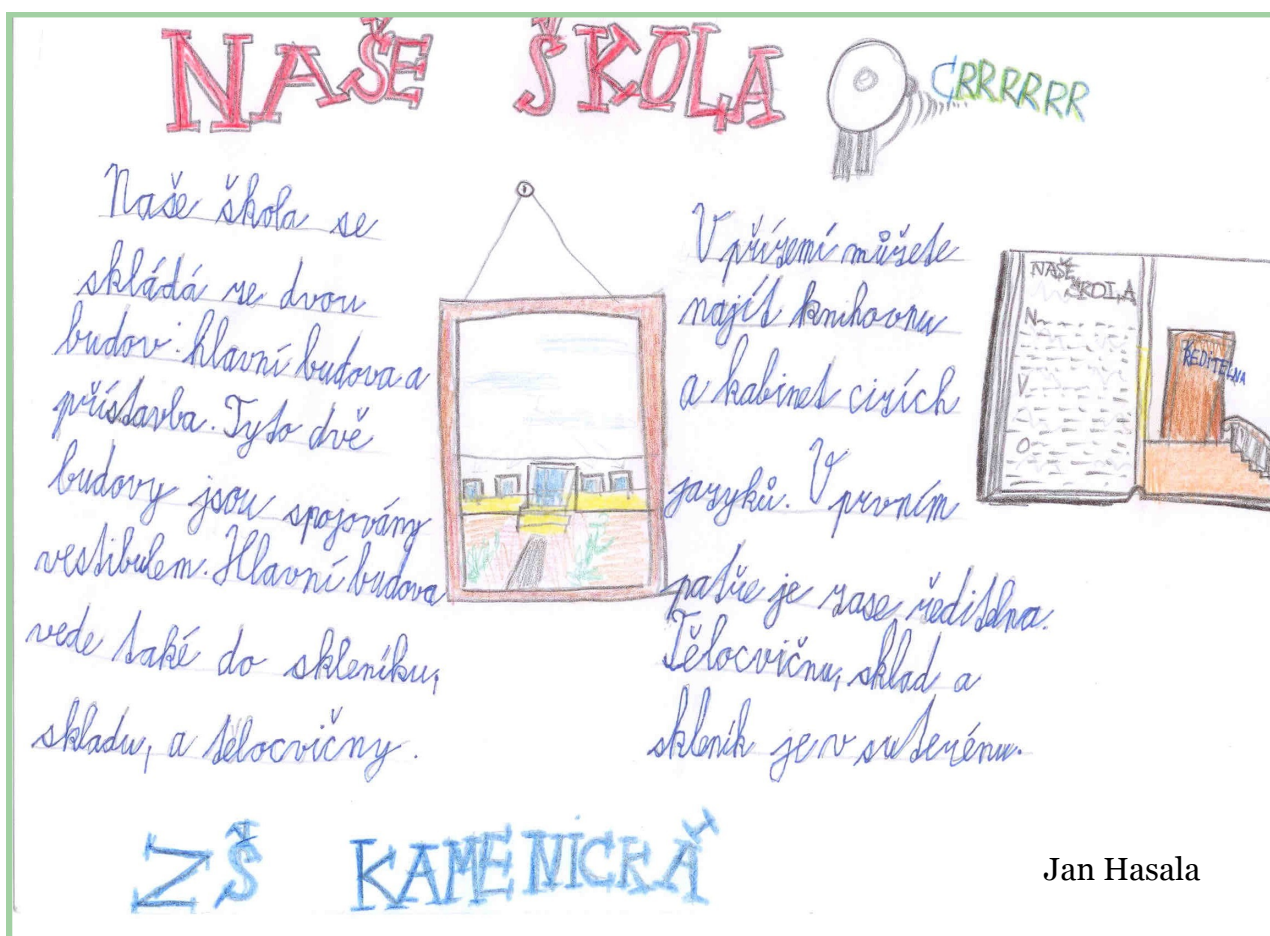 NAŠE ŠKOLA
CRRRRRR
Naše škola se
skládá ze dvou
budov: hlavní budova a
přístavba. Tyto dvě
budovy jsou spojovány
vestibulem. Hlavní budova
vede také do skleníku,
skladu, a tělocvičny.
V přízemí můžete
najít knihovnu
a kabinet cizích
jazyků. V prvním
patře je zase ředitelna.
Tělocvičnu, sklad a
skleník je v suterénu.
NAŠE
ŠKOLA
N
V
O
ŘEDITELNA
ZŠ KAMENICKÁ
Jan Hasala